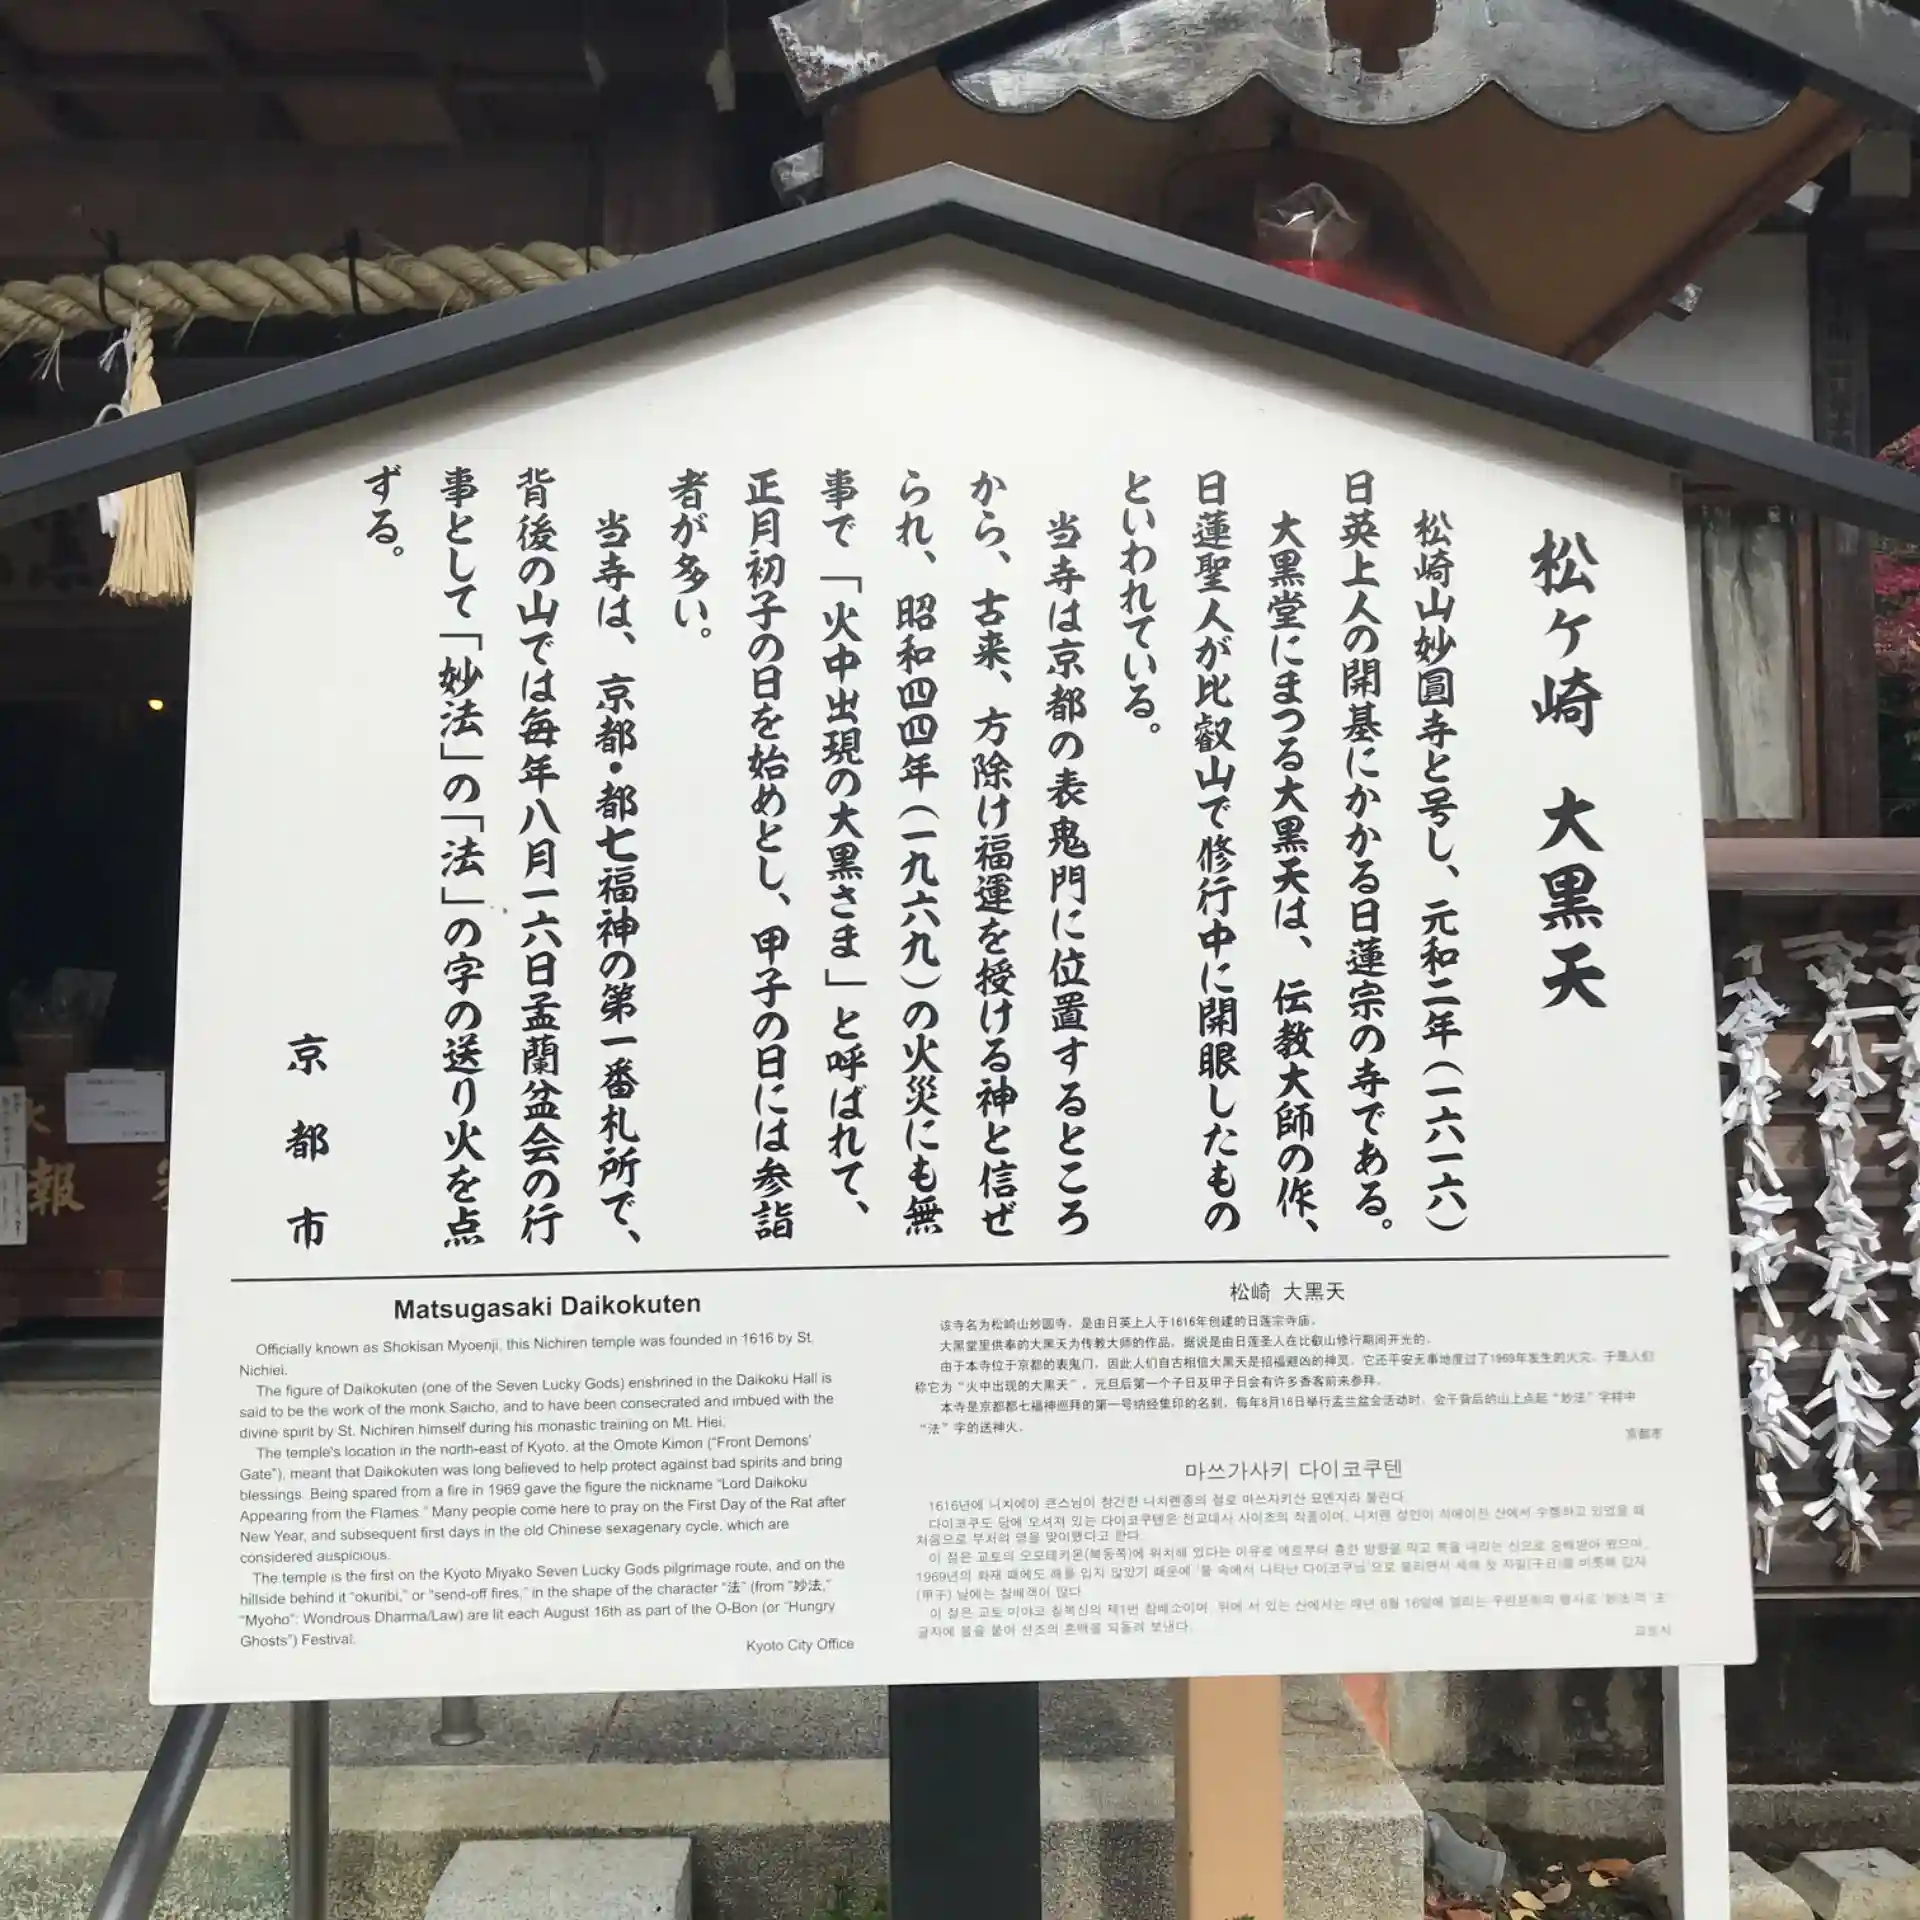 松ケ崎 大黒天
松崎山妙圓寺と号し、元和二年(一六一六)
日英上人の開基にかかる日蓮宗の寺である。
大黒堂にまつる大黒天は、伝教大師の作、
日蓮聖人が比叡山で修行中に開眼したもの
といわれている。
当寺は京都の表鬼門に位置するところ
から、古来、方除け福運を授ける神と信ぜ
られ、昭和四四年(一九六九)の火災にも無
事で「火中出現の大黒さま」と呼ばれて、
正月初子の日を始めとし、甲子の日には参詣
者が多い。
当寺は、京都・都七福神の第一番札所で、
背後の山では毎年八月一六日盂蘭盆会の行
事として「妙法」の「法」の字の送り火を点
ずる。
京都市
Matsugasaki Daikokuten
Officially known as Shokisan Myoenji, this Nichiren temple was founded in 1616 by St.
Nichiei.
The figure of Daikokuten (one of the Seven Lucky Gods) enshrined in the Daikoku Hall is
said to be the work of the monk Saicho, and to have been consecrated and imbued with the
divine spirit by St. Nichiren himself during his monastic training on Mt. Hiei.
The temple's location in the north-east of Kyoto, at the Omote Kimon ("Front Demons'
Gate"), meant that Daikokuten was long believed to help protect against bad spirits and bring
blessings. Being spared from a fire in 1969 gave the figure the nickname "Lord Daikoku
Appearing from the Flames." Many people come here to pray on the First Day of the Rat after
New Year, and subsequent first days in the old Chinese sexagenary cycle, which are
considered auspicious.
The temple is the first on the Kyoto Miyako Seven Lucky Gods pilgrimage route, and on the
hillside behind it "okuribi," or "send-off fires," in the shape of the character "法" (from "妙法,"
"Myoho": Wondrous Dharma/Law) are lit each August 16th as part of the O-Bon (or "Hungry
Ghosts") Festival.
Kyoto City Office
松崎 大黑天
该寺名为松崎山妙圆寺，是由日英上人于1616年创建的日莲宗寺庙。
大黑堂里供奉的大黑天为传教大师的作品，据说是由日莲圣人在比叡山修行期间开光的。
由于本寺位于京都的表鬼门，因此人们自古相信大黑天是招福避凶的神灵。它还平安无事地度过了1969年发生的火灾，于是人们
称它为“火中出现的大黑天”，元旦后第一个子日及甲子日会有许多香客前来参拜。
本寺是京都都七福神巡拜的第一号纳经集印的名刹，每年8月16日举行盂兰盆会活动时，会于背后的山上点起“妙法”字样中
“法”字的送神火。
京都市
마쓰가사키 다이코쿠텐
1616년에 니치에이 큰스님이 창건한 니치렌종의 절로 마쓰자키산 묘엔지라 불린다.
다이코쿠도 당에 모셔져 있는 다이코쿠텐은 전교대사 사이초의 작품이며, 니치렌 성인이 히에이잔 산에서 수행하고 있었을 때
처음으로 부처의 영을 맞이했다고 한다.
이 절은 교토의 오모테키몬(북동쪽)에 위치해 있다는 이유로 예로부터 흉한 방향을 막고 복을 내리는 신으로 숭배받아 왔으며,
1969년의 화재 때에도 해를 입지 않았기 때문에 '불 속에서 나타난 다이코쿠님'으로 불리면서 새해 첫 자일(子日)를 비롯해 갑자
(甲子) 날에는 참배객이 많다.
이 절은 교토 미야코 칠복신의 제1번 참배소이며, 뒤에 서 있는 산에서는 매년 8월 16일에 열리는 우란분회의 행사로
글자에 불을 붙여 선조의 혼백을 되돌려 보낸다.
교토시
報